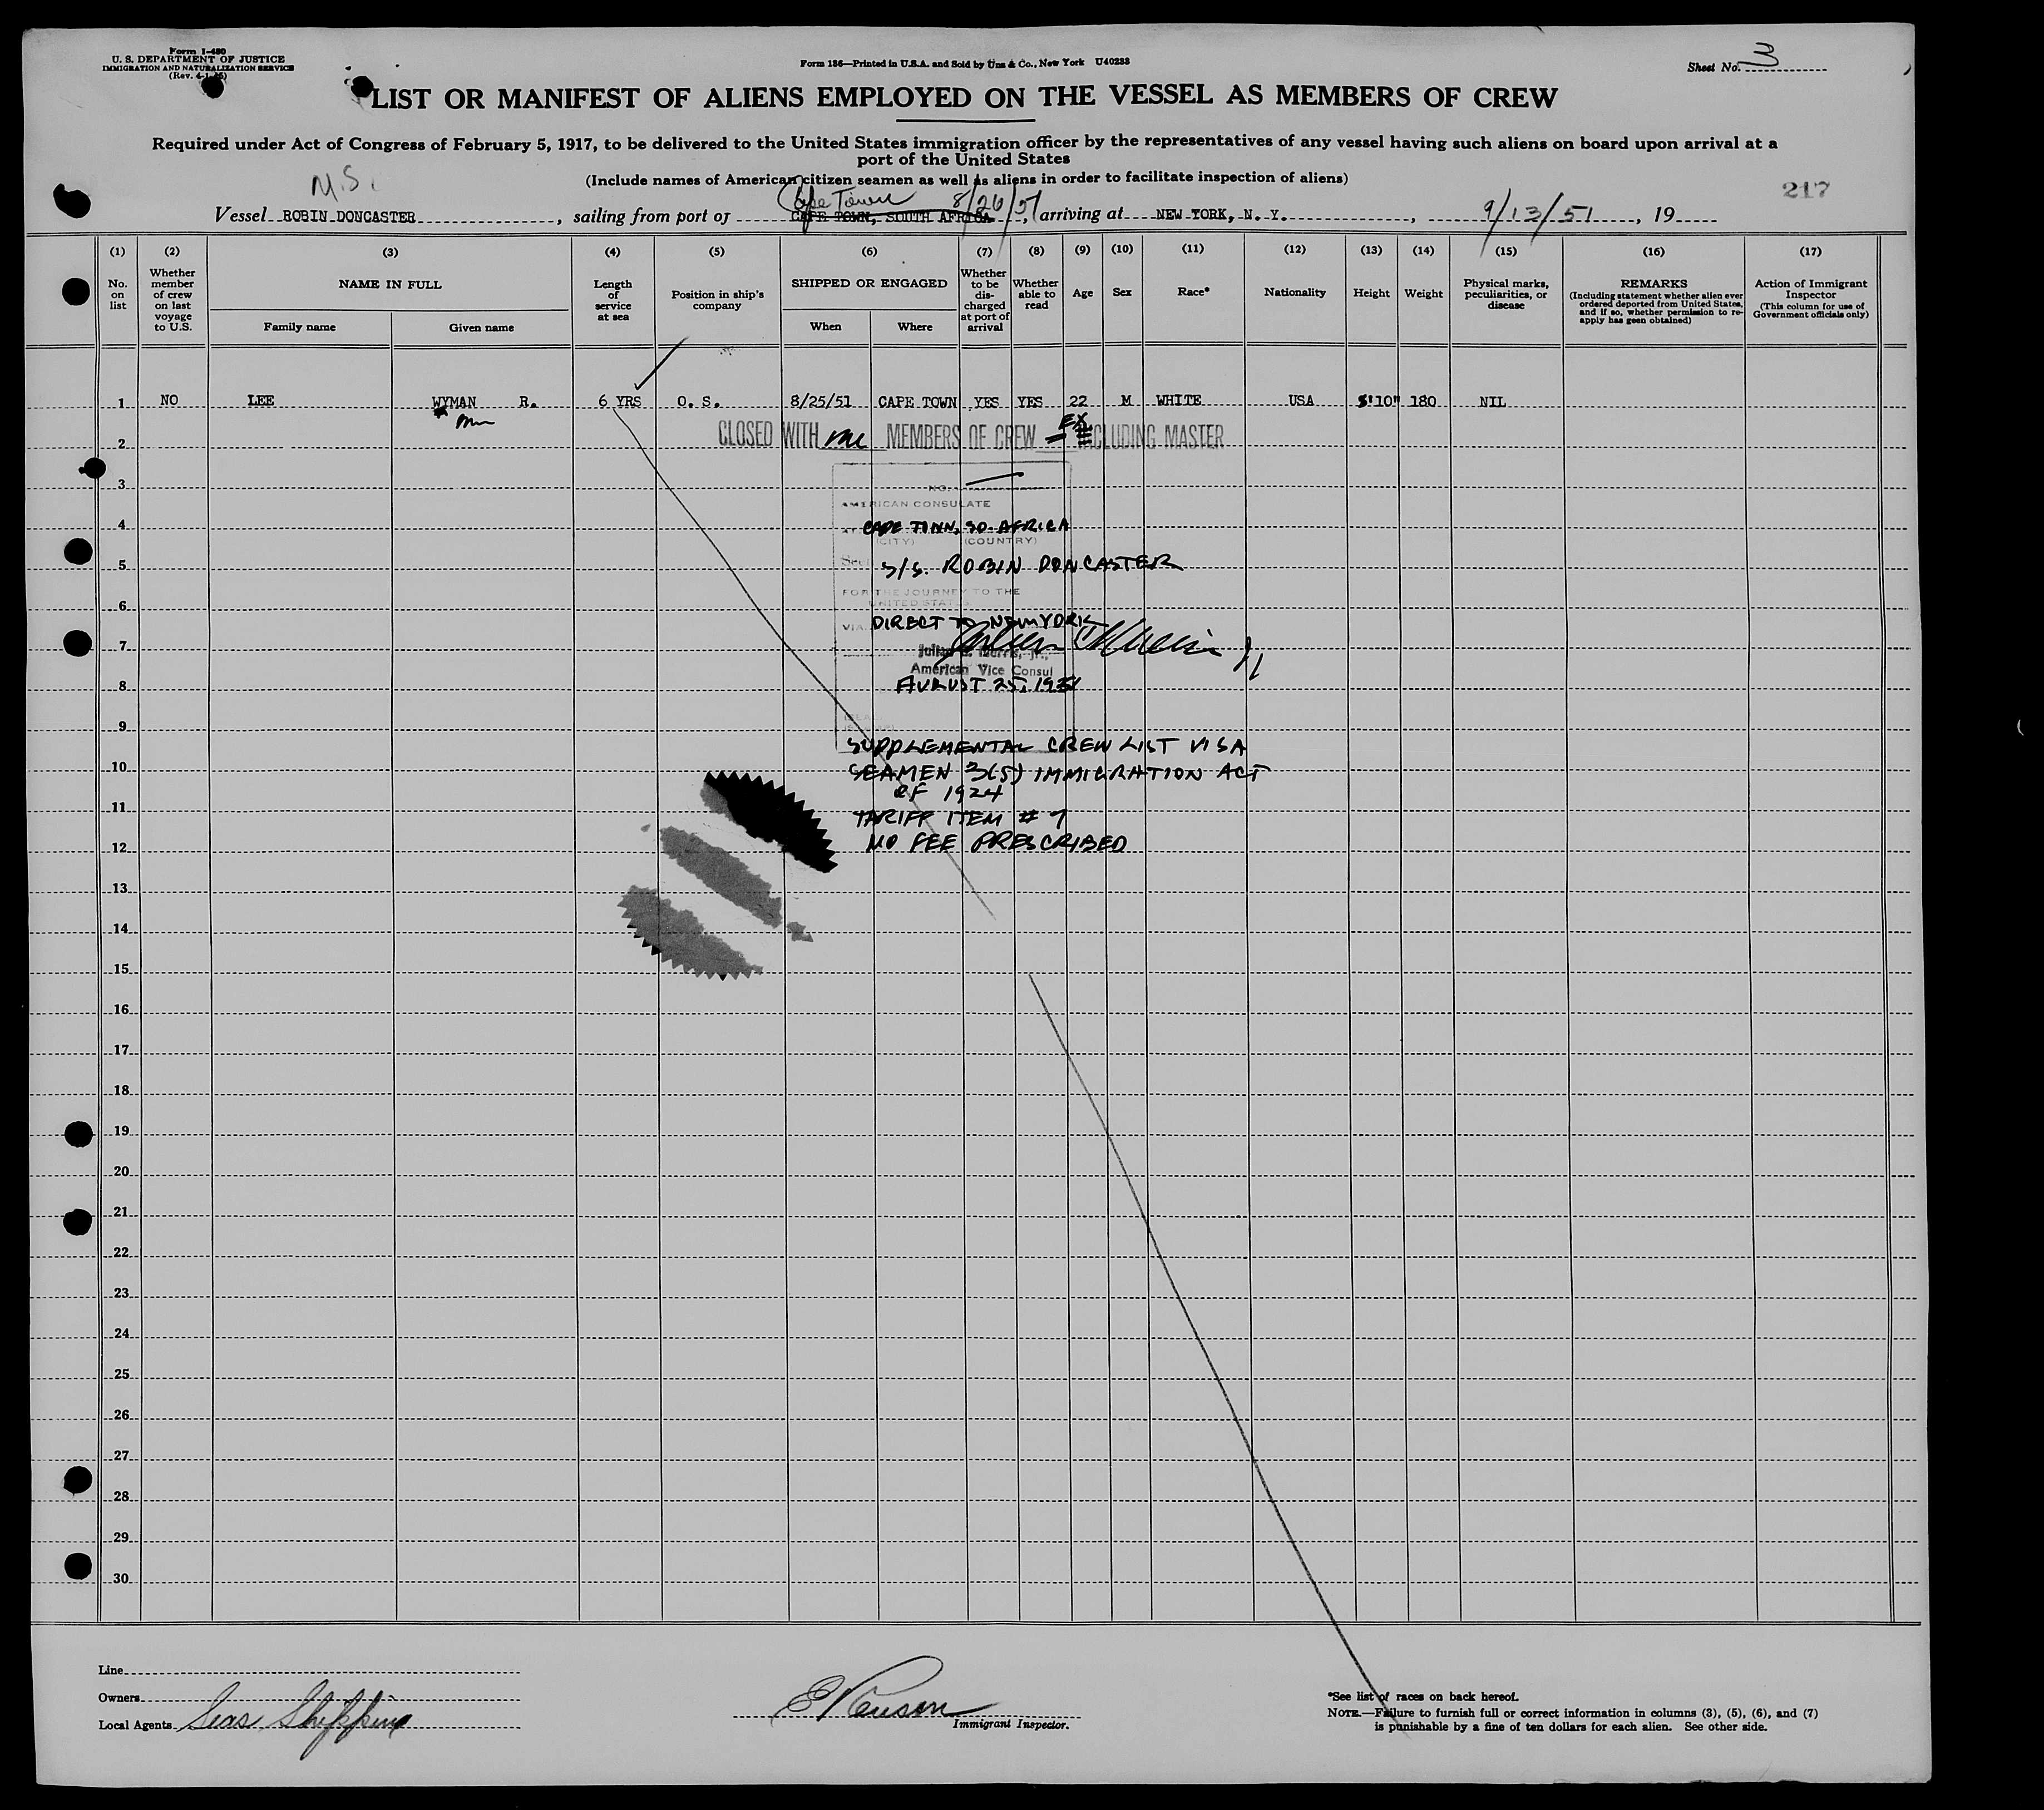 Form I-480
U. S. DEPARTMENT OF JUSTICE
IMMIGRATION AND NATURALIZATION SERVICE
(Rev. 4-1-45)
Form 136—Printed in U.S.A. and Sold by Unz & Co., New York U40233
Sheet No. 3
LIST OR MANIFEST OF ALIENS EMPLOYED ON THE VESSEL AS MEMBERS OF CREW
Required under Act of Congress of February 5, 1917, to be delivered to the United States immigration officer by the representatives of any vessel having such aliens on board upon arrival at a
port of the United States
(Include names of American citizen seamen as well as aliens in order to facilitate inspection of aliens)
M.S.
Cape Town 8/26/51
217
Vessel ROBIN DONCASTER, sailing from port of CAPE TOWN, SOUTH AFRICA, arriving at NEW YORK, N. Y., 9/13/51, 19
(1) (2) (3) (4) (5) (6) (7) (8) (9) (10) (11) (12) (13) (14) (15) (16) (17)
No. on list
Whether member of crew on last voyage to U.S.
NAME IN FULL
Family name
Given name
Length of service at sea
Position in ship's company
SHIPPED OR ENGAGED
When
Where
Whether to be discharged at port of arrival
Whether able to read
Age
Sex
Race*
Nationality
Height
Weight
Physical marks, peculiarities, or disease
REMARKS
(Including statement whether alien ever ordered deported from United States, and if so, whether permission to re-apply has geen obtained)
Action of Immigrant Inspector
(This column for use of Government officials only)
1 NO LEE WYMAN R. 6 YRS O. S. 8/25/51 CAPE TOWN YES YES 22 M WHITE USA 5'10" 180 NIL
2
CLOSED WITH one MEMBERS OF CREW EXCLUDING MASTER
3
NO.
AMERICAN CONSULATE
4
CAPE TOWN, SO. AFRICA
(CITY) (COUNTRY)
5
S/S. ROBIN DONCASTER
FOR THE JOURNEY TO THE
UNITED STATES
6
VIA DIRECT TO NEW YORK
7
Julian C. Nicolas Jr.
American Vice Consul
8
AUGUST 25, 1951
9
SUPPLEMENTAL CREW LIST VISA
10
SEAMEN 3(5) IMMIGRATION ACT
OF 1924
11
TARIFF ITEM # 7
12
NO FEE PRESCRIBED
13
14
15
16
17
18
19
20
21
22
23
24
25
26
27
28
29
30
Line
Owners
Local Agents Seas Shipping
Immigrant Inspector.
*See list of races on back hereof.
NOTE.—Failure to furnish full or correct information in columns (3), (5), (6), and (7)
is punishable by a fine of ten dollars for each alien. See other side.